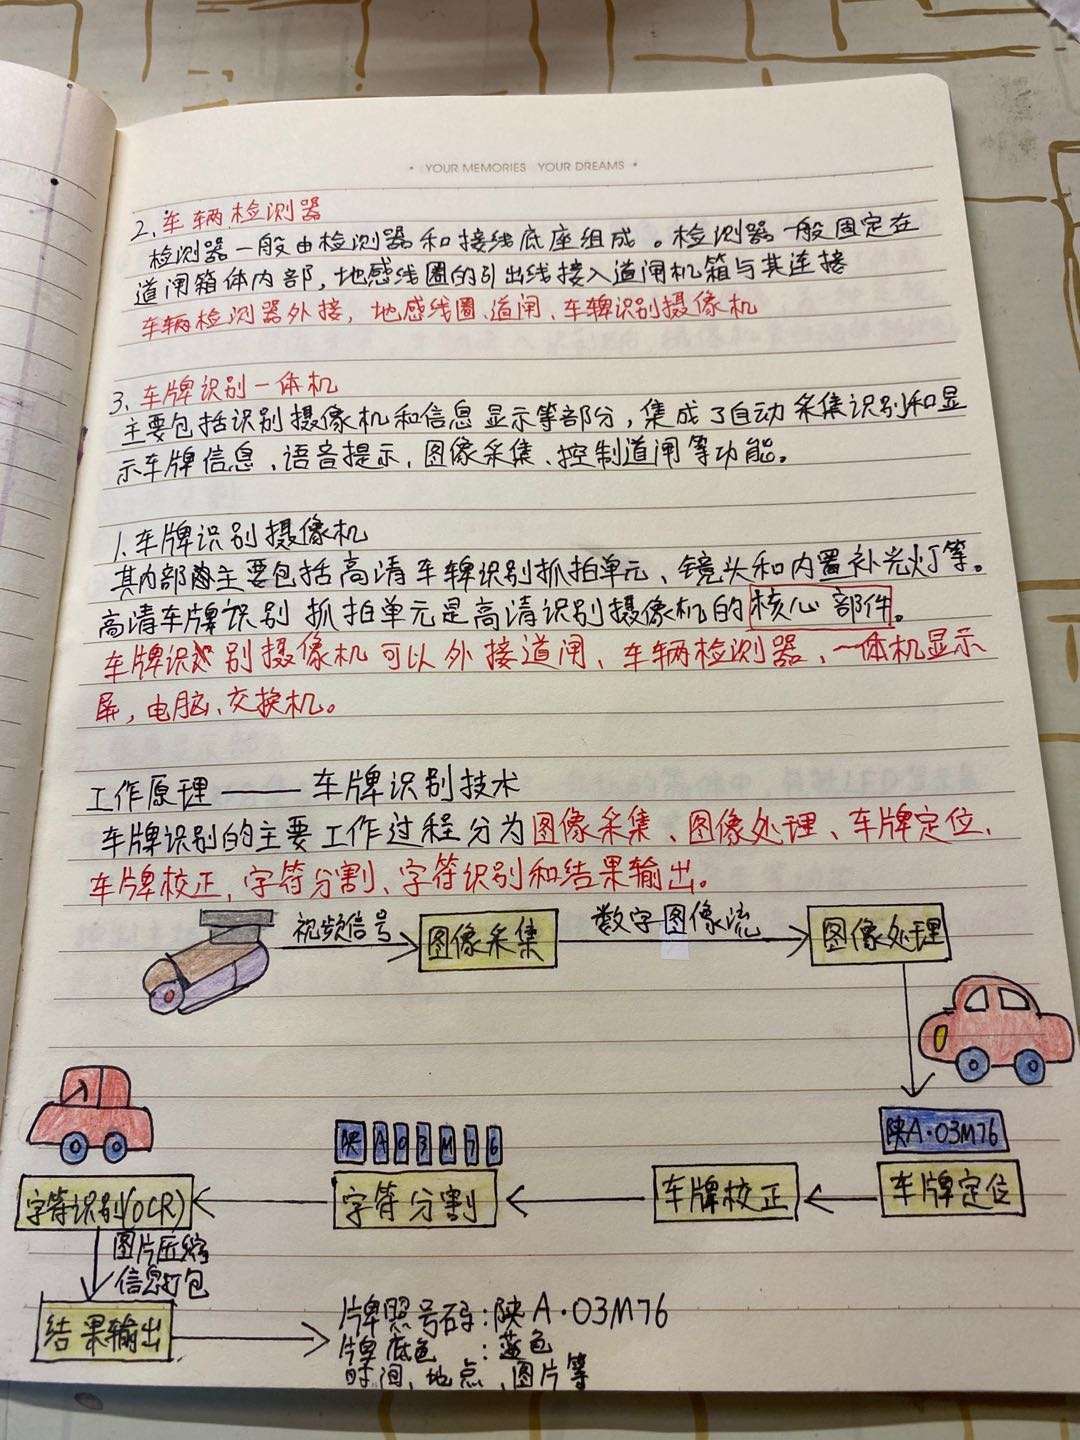 YOUR MEMORIES YOUR DREAMS
2、车辆检测器
检测器一般由检测器和接线底座组成。检测器一般固定在
道闸箱体内部，地感线圈的引出线接入道闸机箱与其连接
车辆检测器外接，地感线圈、道闸、车牌识别摄像机
3、车牌识别一体机
主要包括识别摄像机和信息显示等部分，集成了自动采集识别和显
示车牌信息、语音提示、图像采集、控制道闸等功能。
1、车牌识别摄像机
其内部主要包括高清车牌识别抓拍单元、镜头和内置补光灯等。
高清车牌识别抓拍单元是高清识别摄像机的核心部件。
车牌识别摄像机可以外接道闸、车辆检测器、一体机显示
屏，电脑、交换机。
工作原理——车牌识别技术
车牌识别的主要工作过程分为图像采集、图像处理、车牌定位、
车牌校正、字符分割、字符识别和结果输出。
视频信号
图像采集
数字图像流
图像处理
陕A·03M76
车牌定位
车牌校正
陕 A 0 3 M 7 6
字符分割
字符识别(OCR)
图片压缩
信息打包
结果输出
牌照号码：陕A·03M76
牌底色：蓝色
时间、地点、图片等